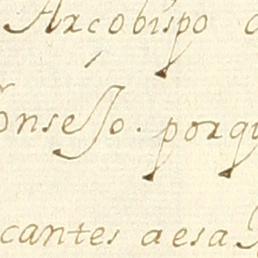 Arcobispo
onsejo. porq
cantes a esa